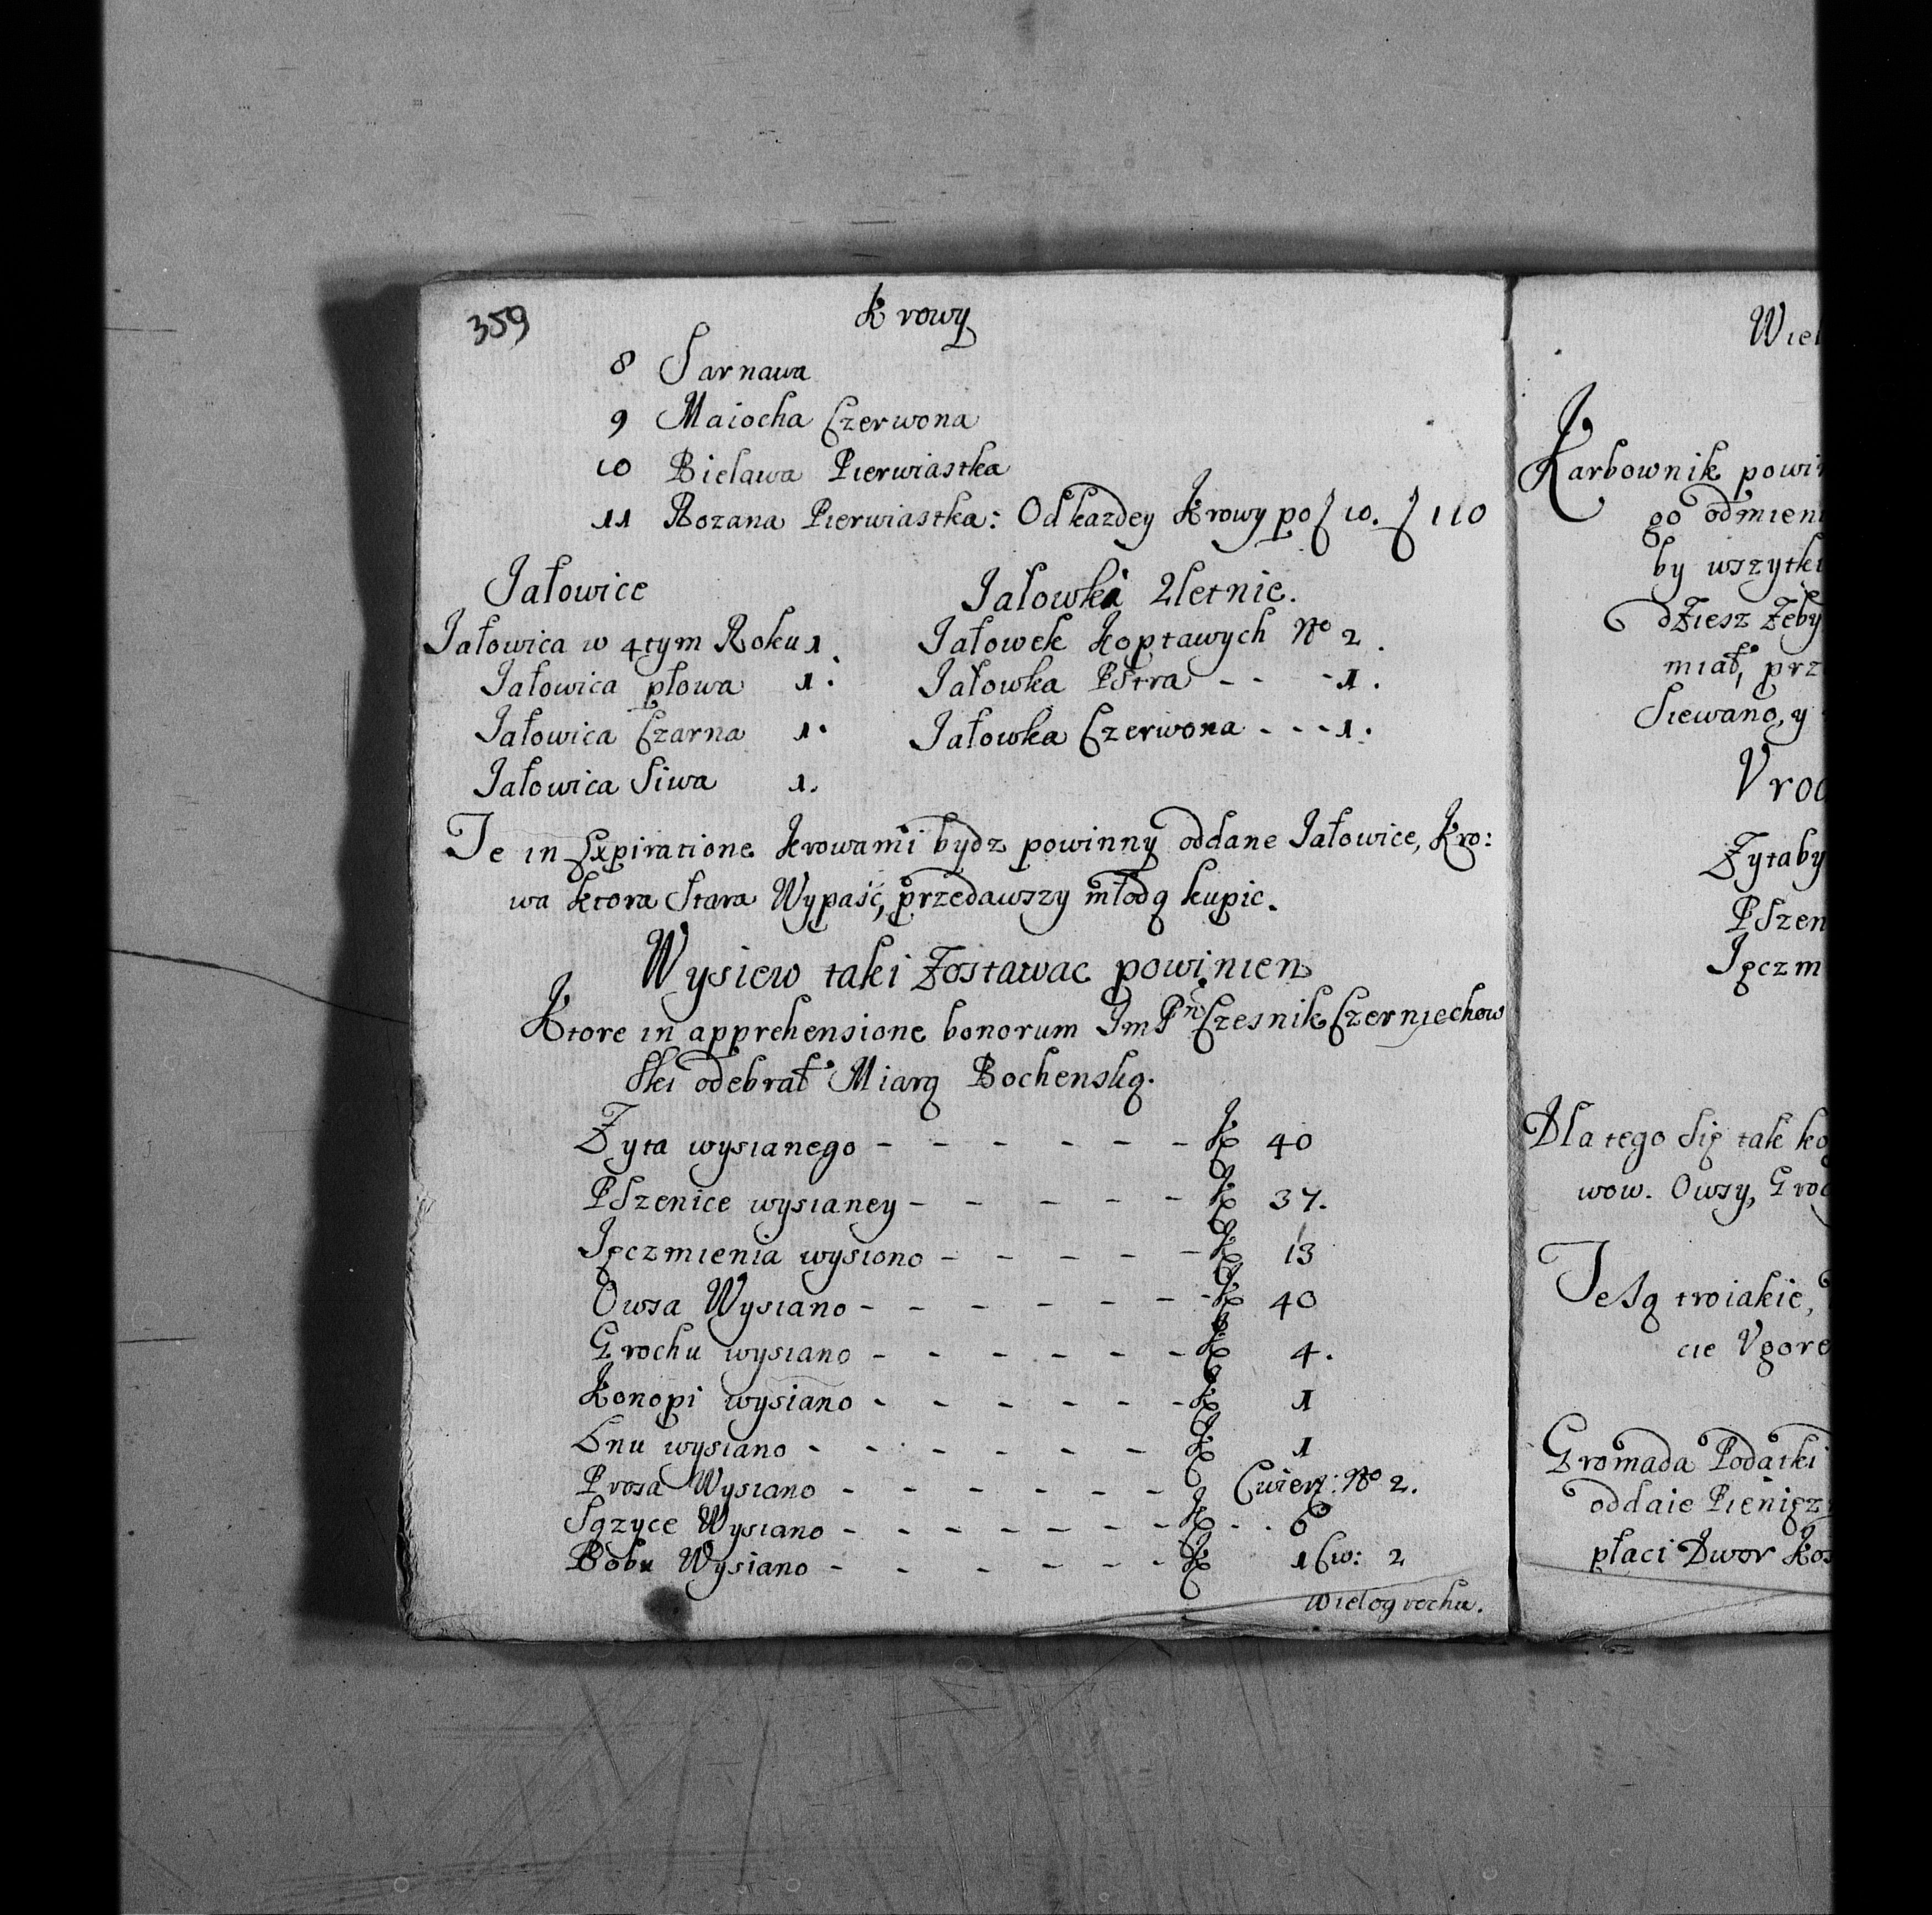 359
Krowy
8 Sarnawa
9 Maiocha Czerwona
10 Bielawa Pierwiastka
11 Rozana Pierwiastka: Od kazdey Krowy po f 10. f 110
Jałowice
Jałowica w 4tym Roku 1.
Jałowica płowa 1.
Jałowica Czarna 1.
Jałowica Siwa 1.
Jalowki 2letnie.
Jałowek koprawych No 2.
Jałowka Pstra - - - 1.
Jałowka Czerwona - - - 1.
Te in Expiratione krowami bydz powinny oddane Jałowice, Kro:
wa ktora Stara Wypaść, przedawszy młodą kupic.
Wysiew taki Zostawac powinien
Ktore in apprehensione bonorum JmPn Czesnik Czerniechow
ski odebrał Miarą Bochenską.
Zyta wysianego - - - - - - K 40
PSzenice wysianey - - - - - K 37.
Jęczmienia wysiono - - - - - K 13
Owsa Wysiano - - - - - - - K 40
Grochu wysiano - - - - - - K 4.
Konopi wysiano - - - - - - K 1
Lnu wysiano - - - - - - K 1
Prosa Wysiano - - - - - - Cwierz: No 2.
Sązyce Wysiano - - - - - - - K - . 6
Bobu Wysiano - - - - - - K 1 Cw: 2
Wielogrochu.
Wiel
Karbownik powin
go odmieni
by wszytki
dZiesz Zeby
miał, prz
Siewano, y
Vrod
Zytaby
PSzen
Jęczm
Dla tego Się tak ko
wow. Owsy, Groc
Te Są troiakie,
cie Vgore
Gromada Podatki
oddaie Pienięz
płaci Dwor Kos